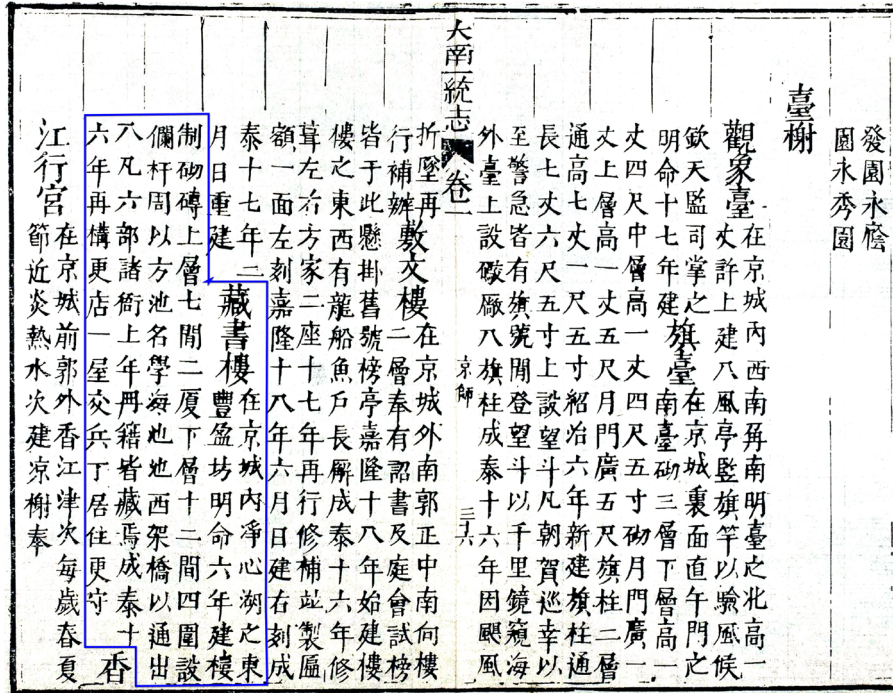 發園永廕
園永秀園
臺榭
觀象臺
在京城內西南再南明臺之北高一
丈許上建八風亭監旗竿以驗風候
欽天監司掌之
明命十七年建
旗臺
在京城裏面直午門之
南臺砌三層下層高一
丈四尺中層高一丈四尺五寸砌月門廣一
丈上層高一丈五尺月門廣五尺旗柱二層
通高七丈一尺五寸紹治六年新建旗柱通
長七丈六尺五寸上設望斗凡朝賀巡幸以
至警急皆有旗號間登望斗以千里鏡窺海
外臺上設礮廠八旗柱成泰十六年因颶風
大南一統志 卷一
京師
三十六
折墜再
行補辦
敷文樓
在京城外南郭正中南向樓
二層奉有詔書及庭會試榜
皆于此懸掛舊號榜亭嘉隆十八年始建樓
樓之東西有龍船魚戶長廨成泰十六年修
葺左右方家二座十七年再行修補並製匾
額一面左刻嘉隆十八年六月日建右刻成
泰十七年二
月日重建
藏書樓
在京城內淨心湖之東
豐盈坊明命六年建樓
制砌磚上層七間二廈下層十二間四圍設
欄杆周以方池名學海池池西架橋以通出
入凡六部諸衙上年冊籍皆藏焉成泰十
六年再構更店一屋交兵丁居住更守
香
江行宮
在京城前郭外香江津次每歲春夏
節近炎熱水次建凉榭奉